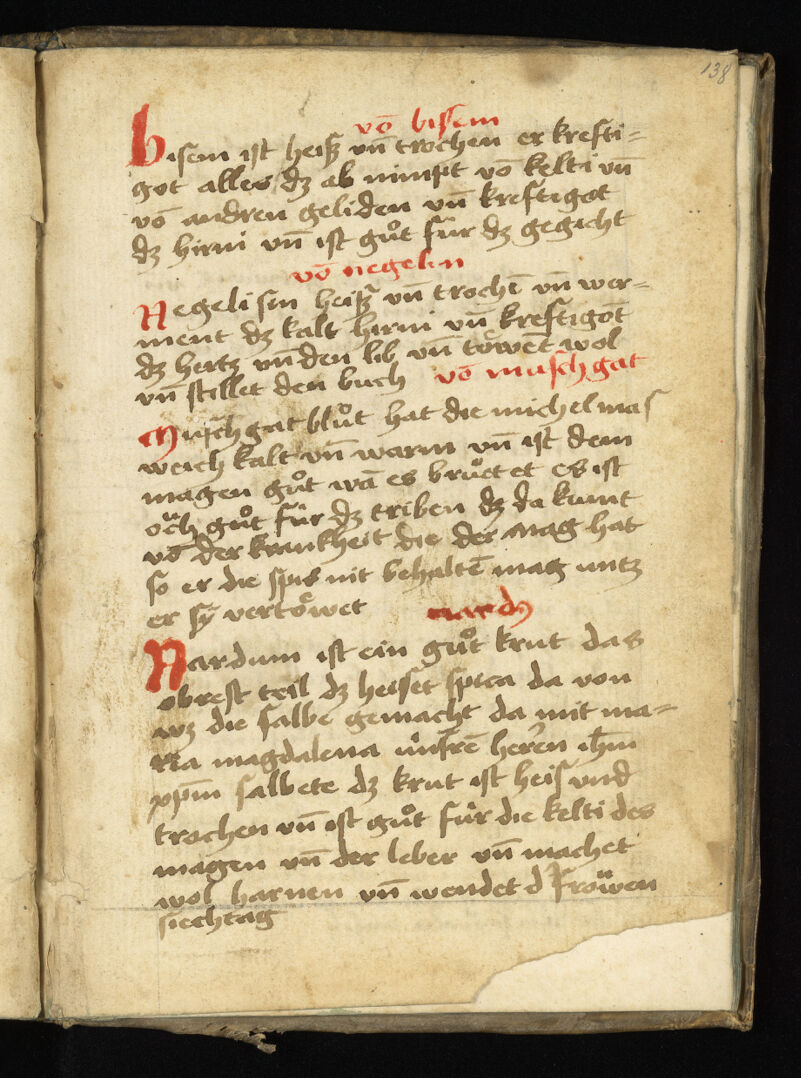 138
vō bisem
Bisem ist heiß vn̄ trochen er krefti=
got alles dz ab nimpt vō kelti vn̄
vō andren geliden vn̄ kreftigot
dz hirni vn̄ ist gůt für dz gegicht
vō negelin
Negeli sin heiß vn̄ trochē vn̄ wer=
ment dz kalt hirni vn̄ kreftigot
dz hertz vn̄ den lib vn̄ töwet wol
vn̄ stillet den buch vō muschgat
Muschgat blůt hat die michel mas
weich kalt vn̄ warm vn̄ ist dem
magen gůt wā es brüctet es ist
och gůt für dz triben dz da kumt
vō der krankheit die der mag hat
so er die spis nit behaltē mag untz
er sÿ vertöwet nardꝫ
Nardum ist ein gůt krut das
obrest teil dz heiset spica da von
wz die salbe gemacht da mit ma=
ria magdalena ünsrē herren ih̄m
xp̄m salbete dz krut ist heis und
trochen vn̄ ist gůt für die kelti des
magen vn̄ der leber vn̄ machet
wol harnen vn̄ wendet d fröwen
siechtag